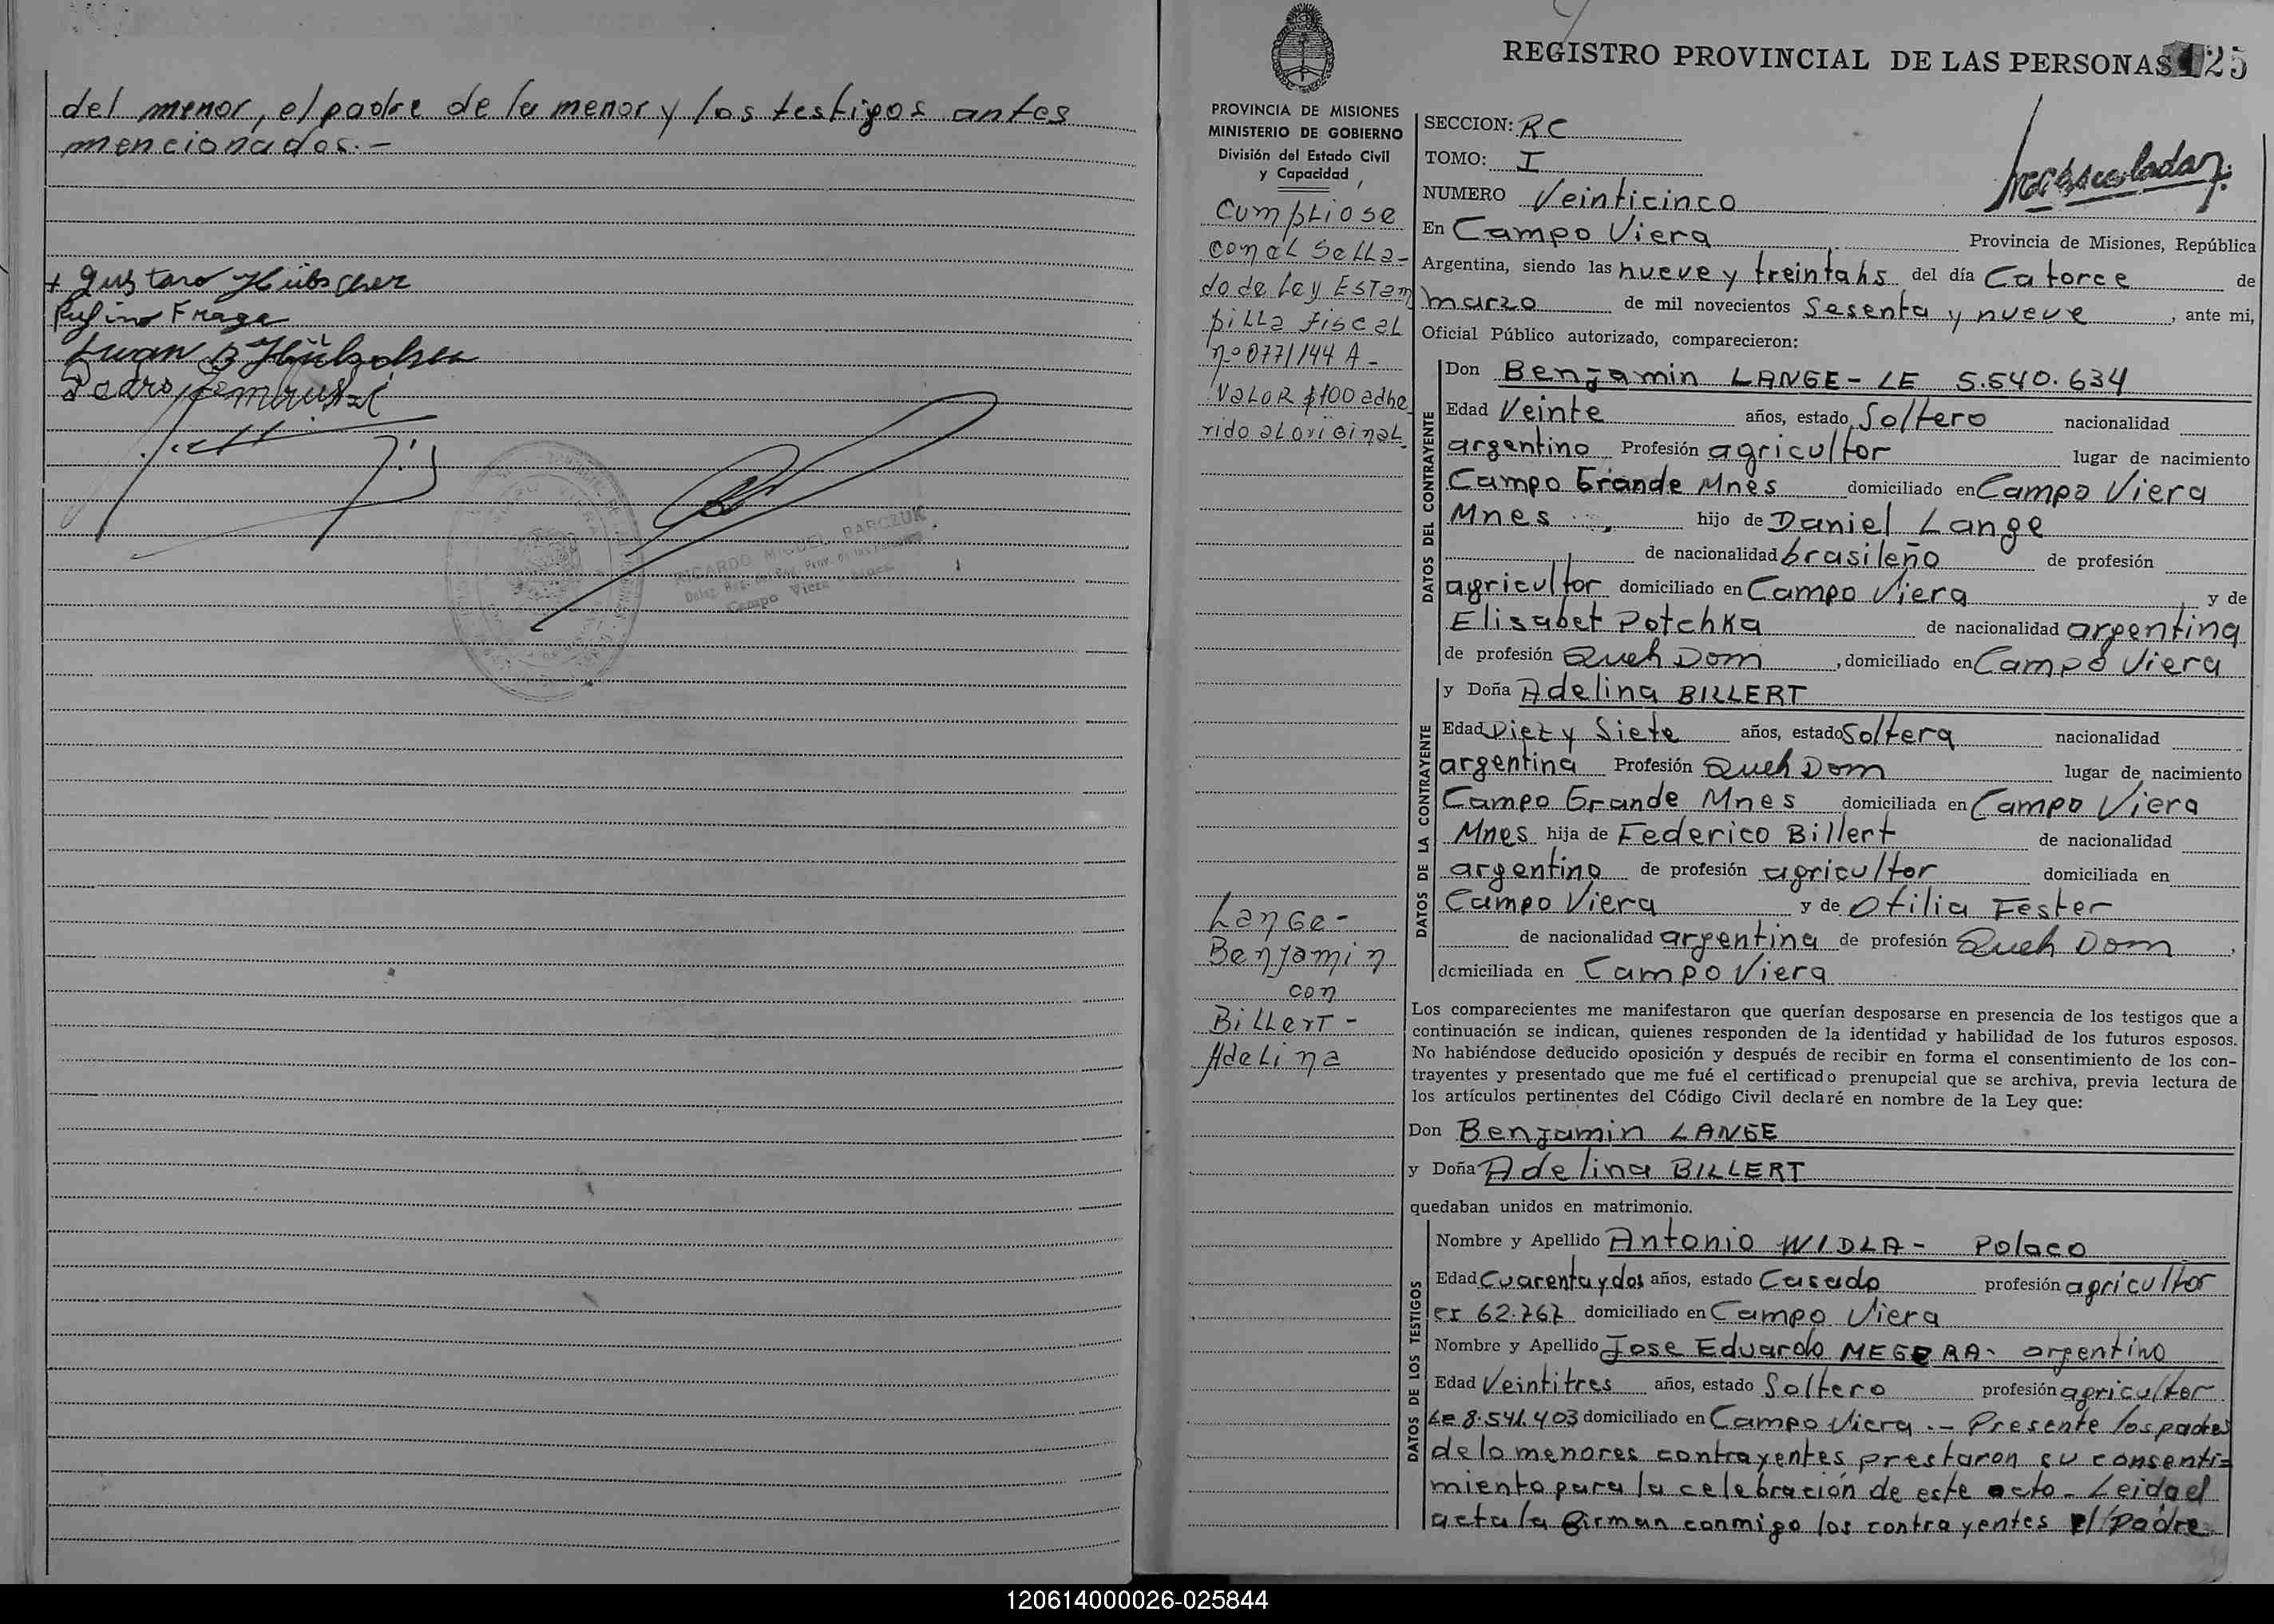 del menor, el padre de la menor y los testigos antes
mencionados.-
+ Gustavo Hübscher
Rufino Fraga
Juan B Hübscher
Pedro
RICARDO MIGUEL BARCZUK
Campo Viera
REGISTRO PROVINCIAL DE LAS PERSONAS 125
PROVINCIA DE MISIONES
MINISTERIO DE GOBIERNO
División del Estado Civil
y Capacidad
Cumpliose
con el Sella-
do de Ley Estam
pilla fiscal
nº 0771144 A-
Valor $100 adhe
rido al original.
Lange-
Benjamin
con
Billert-
Adelina
SECCION: RC
TOMO: I
NUMERO Veinticinco
En Campo Viera Provincia de Misiones, República
Argentina, siendo las nueve y treintahs del día Catorce de
marzo de mil novecientos Sesenta y nueve, ante mi,
Oficial Público autorizado, comparecieron:
DATOS DEL CONTRAYENTE
Don Benjamin LANGE- LE 5.540.634
Edad Veinte años, estado Soltero nacionalidad
argentino Profesión agricultor lugar de nacimiento
Campo Grande Mnes domiciliado en Campo Viera
Mnes, hijo de Daniel Lange
de nacionalidad brasileño de profesión
agricultor domiciliado en Campo Viera y de
Elisabet Potchka de nacionalidad argentina
de profesión Queh Dom, domiciliado en Campo Viera
DATOS DE LA CONTRAYENTE
y Doña Adelina BILLERT
Edad Diez y Siete años, estado Soltera nacionalidad
argentina Profesión Queh Dom lugar de nacimiento
Campo Grande Mnes domiciliada en Campo Viera
Mnes hija de Federico Billert de nacionalidad
argentino de profesión agricultor domiciliada en
Campo Viera y de Otilia Fester
de nacionalidad argentina de profesión Queh Dom,
domiciliada en Campo Viera
Los comparecientes me manifestaron que querían desposarse en presencia de los testigos que a
continuación se indican, quienes responden de la identidad y habilidad de los futuros esposos.
No habiéndose deducido oposición y después de recibir en forma el consentimiento de los con-
trayentes y presentado que me fué el certificado prenupcial que se archiva, previa lectura de
los artículos pertinentes del Código Civil declaré en nombre de la Ley que:
Don Benjamin LANGE
y Doña Adelina BILLERT
quedaban unidos en matrimonio.
DATOS DE LOS TESTIGOS
Nombre y Apellido Antonio WIDLA- Polaco
Edad Cuarenta y dos años, estado Casado profesión agricultor
CI 62.767 domiciliado en Campo Viera
Nombre y Apellido Jose Eduardo MEGERA- argentino
Edad Veintitres años, estado Soltero profesión agricultor
Le 8.541.403 domiciliado en Campo Viera.- Presente los padres
de lo menores contrayentes prestaron su consenti=
miento para la celebración de este acto- Leida el
acta la firman conmigo los contrayentes el padre
120614000026-025844